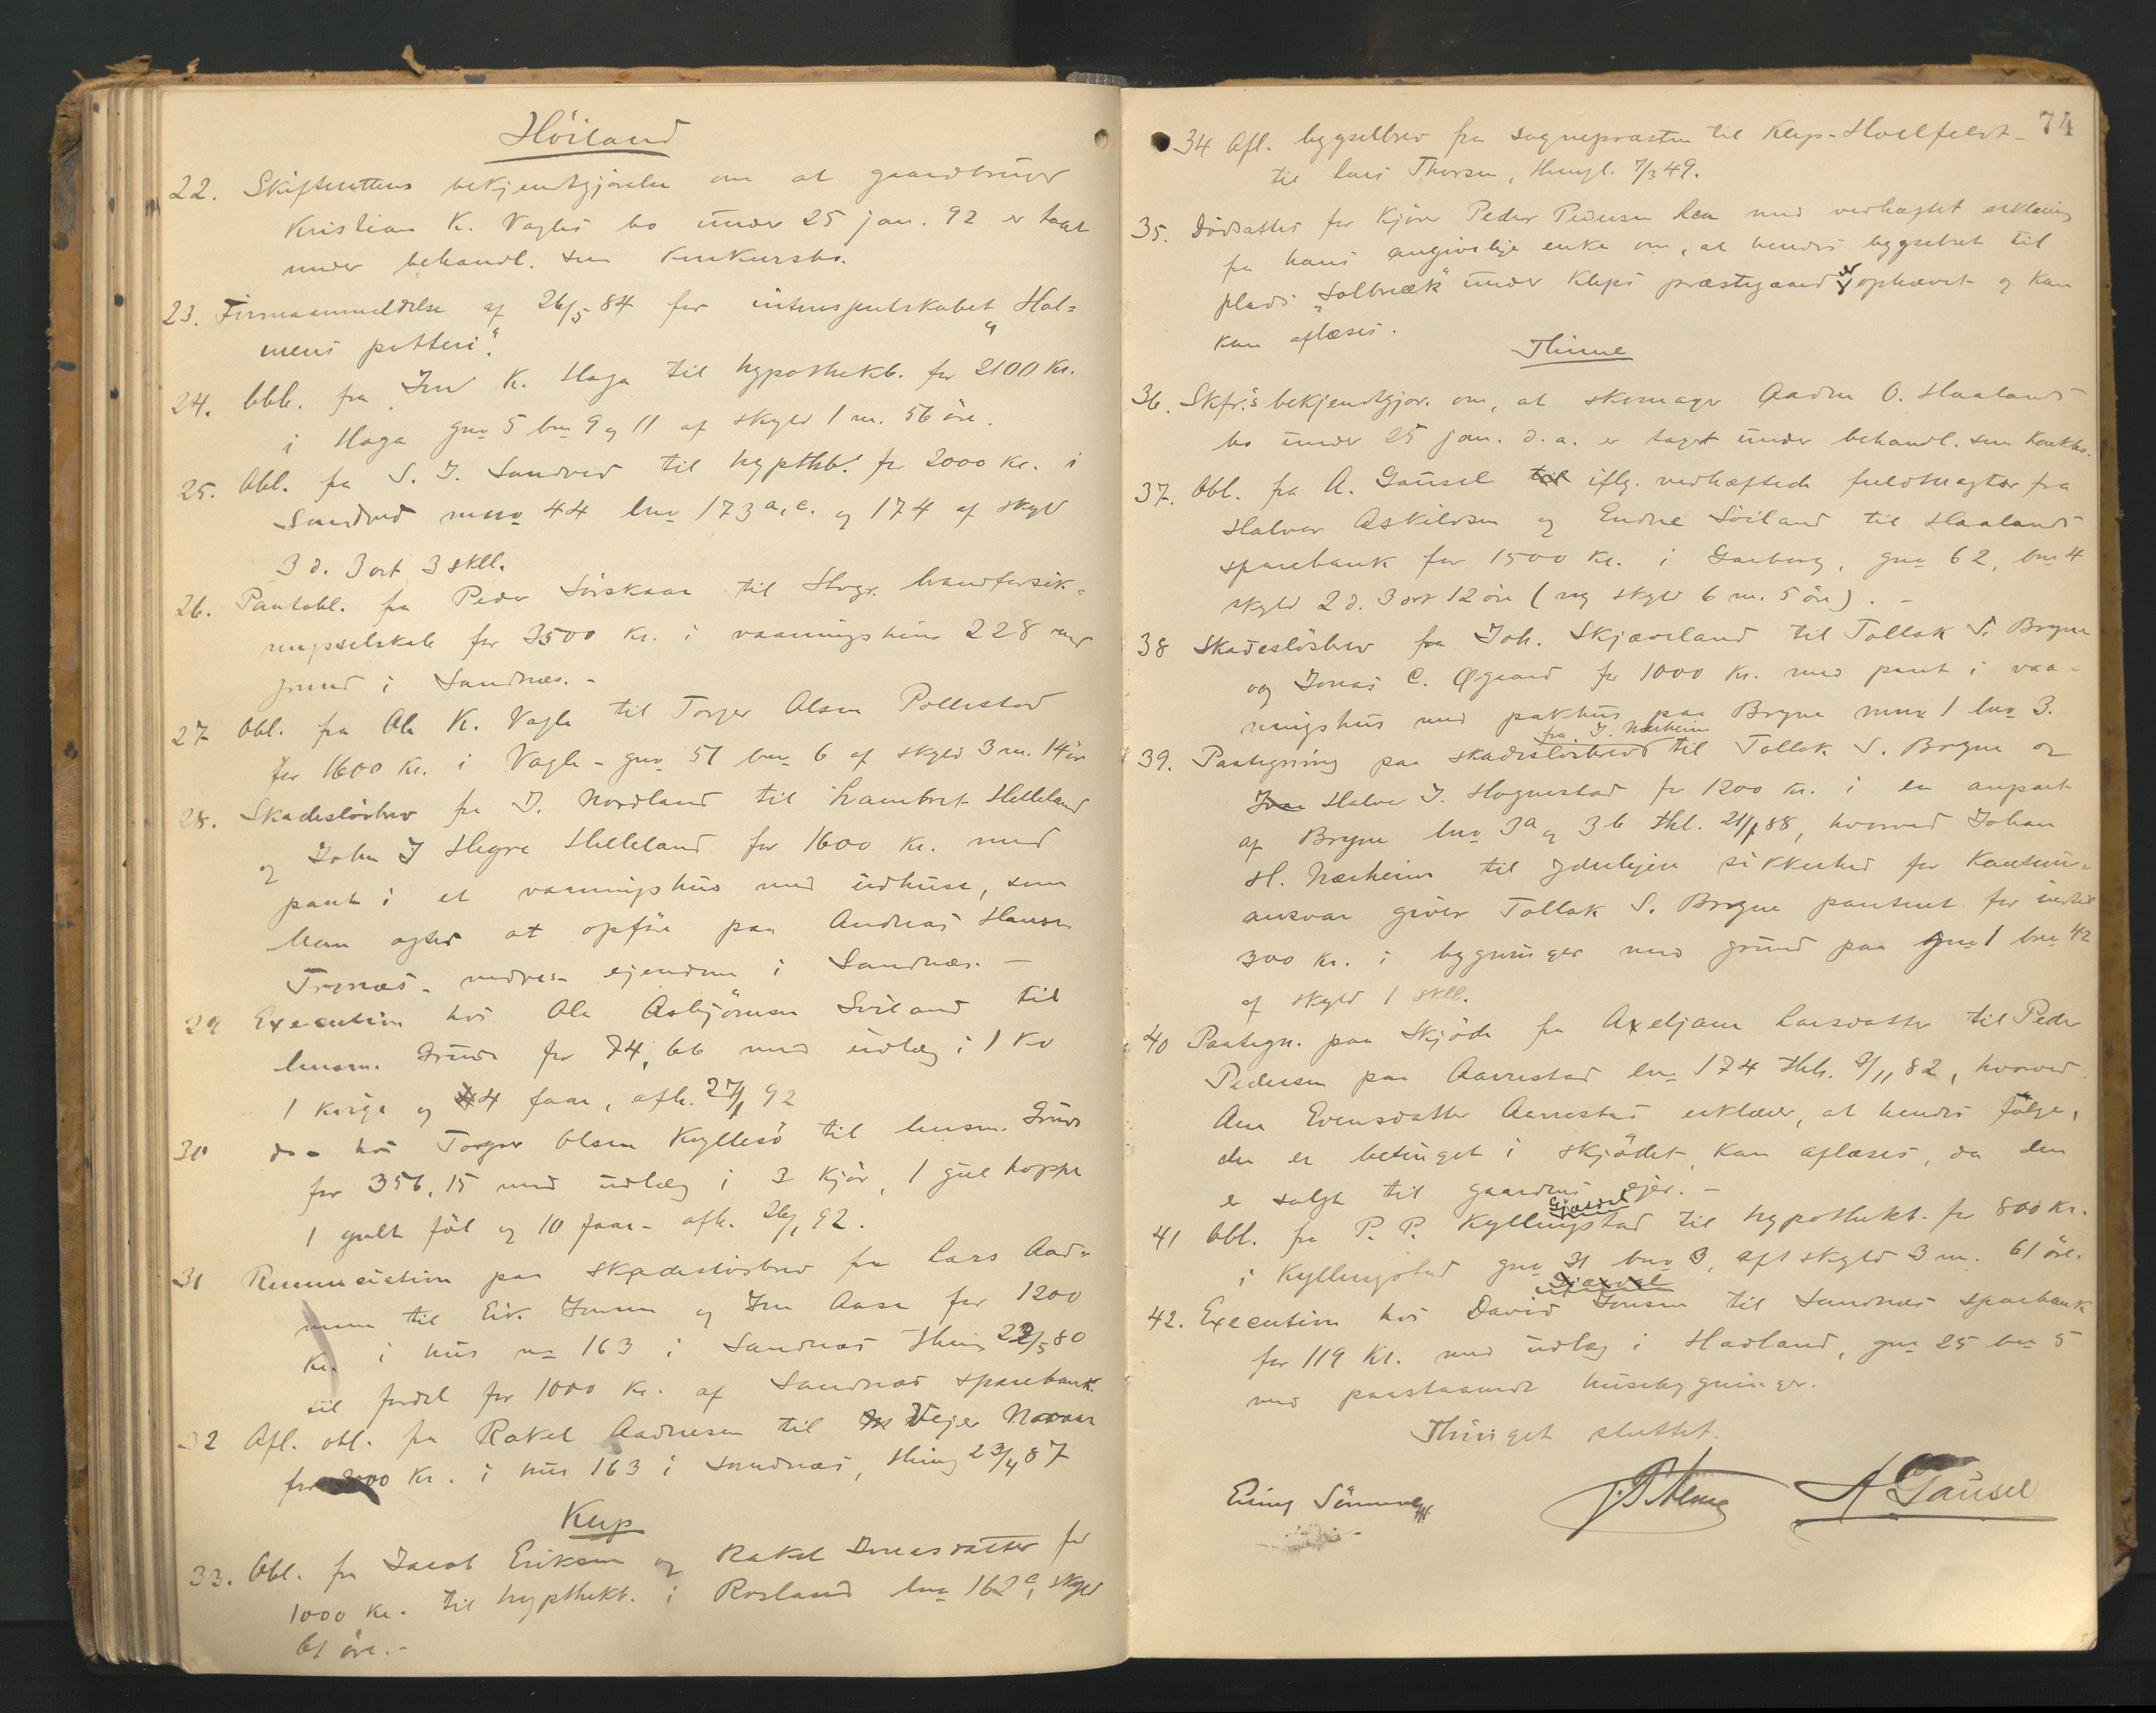 Höiland
22. Skifterettens bekjendtgjörelse om at gaardbruger
Kristian K. Vagles bo under 25 jan. 92 er taget
under behandl. som konkursbo.
23. Firmaanmeldelse af 26/5 84 for interessentskabet "Hol=
mens potteri".
24. Obl. fra K. Haga til hypothekb. for 2100 Kr.
i Haga gno 5 bno 9 og 11 af skyld 1 m. 56 öre.
25. Obl. fra S. J. Sandved til hypthb. for 2000 Kr. i
Sandved mno 44 lno 173 a, c. og 174 af skyld
3 d. 3 ort 3 skll.
26. Pantobl. fra Peder Sörskaar til Norges brandforsik=
ringsselskab for 3500 Kr. i vaaningshus 228 med
grund i Sandnæs. -
27 Obl. fra Ole K. Vagle til Torger Olsen Pollestad
for 1600 Kr. i Vagle - gno 51 bno 6 af skyld 3 m. 14 öre
28. Skadeslösbrev fra J. Nordland til Lambret Helleland
og John J Hegre Helleland for 1600 Kr. med
pant i et vaaningshus med udhuse, som
han agter at opföre paa Andreas Hansen
Tronæs. ejendom i Sandnæs. -
29 Execution hos Ole Asbjörnsen Sviland til
lensm. Grude for 74,66 med udlæg i 1 Ko
1 kvige og 4 faar, afh. 27/1 92
30 do - hos Torger Olsen Kyllesö til lensm. Grude
for 356,15 med udlæg i 3 Kjör, 1 gul hoppe
1 gult föl og 10 faar - afh. 26/1 92.
31 Renunciation paa skadeslösbrev fra Lars Aad=
nesen til Eik. Jonsen og Jon Aase for 1200
Kr. i hus no 163 i Sandnæs thing 22/5 80
til fordel for 1000 Kr. af Sandnæs sparebank.
32 Afl. obl. fra Rakel Aadnesen til Vejer
for 2000 Kr. i hus 163 i Sandnæs, thing 23/4 87
Klep
33. Obl. fra Jacob Eriksen og Rakel Jonasdatter for
1000 Kr. til hypthekb. i Rosland lno 162 c, skyld
61 öre. -
74
34 Afl. bygselbrev fra sognepræsten til Klep - Hvelfeldt -
til Lars Thorsen, thingl. 7/3 49.
35. Dödsattest for Kjörer Peder Pedersen Lea med vedhægtet erklæring
fra hans angivelige enke om, at hendes bygselret til
plads "Solbræk" under Kleps præstegaard er ophævet og kan
kan aflæses.
Thime
36. Skfr.'s bekjendtgjör. om, at skomager Aadne O. Haalands
bo under 25 jan. d. a. er taget under behandl. som konkbo.
37. Obl. fra A. Gausel til iflg. vedhæftede fuldmagter fra
Halvor Askildsen og Endre Söiland til Haalands
sparebank for 1500 Kr. i Garborg, gno 62, bno 4
skyld 2 d. 3 ort 12 öre (ny skyld 6 m. 5 öre). -
38 Skadeslösbrev fra Joh. Skjæveland til Tollak S. Bryne
og Jonas C. Øgaard for 1000 Kr. med pant i vaa=
ningshus med pakhus paa Bryne mno 1 lno 3.
fra J. Nærheim
39. Paategning paa skadeslösbrev til Tollak S. Bryne og
Halvor J. Hognestad for 1200 Kr. i en anpart
af Bryne lno 3a og 3b thl. 21/1 88, hvorved Johan
H. Nærheim til yderligere sikkerhed for kautions=
ansvar giver Tollak S. Bryne panteret for indtil
300 Kr. i bygninger med grund paa gno 1 bno 42
af skyld 1 skll.
40 Paategn. paa Skjöde fra Axeljane Larsdatter til Peder
Pedersen paa Aarrestad lno 174 thl. 9/11 82, hvorved
Ane Evensdatter Aarrestad erklærer, at hendes fölge,
der er betinget i skjödet, kan aflæses, da den
er solgt til gaardens ejer. -
Gjesdal
41 Obl. fra P. P. Kyllingstad til hypothekb. for 800 Kr.
i Kyllingstad gno 31 bno 3, af skyld 3 m. 61 öre.
Gjesdal
42. Execution hos David Jonsen til Sandnæs sparebank
for 119 Kr. med udlæg i Hadland, gno 25 bno 5
med paastaaende husebygninger.
Thinget sluttet.
A Gausel